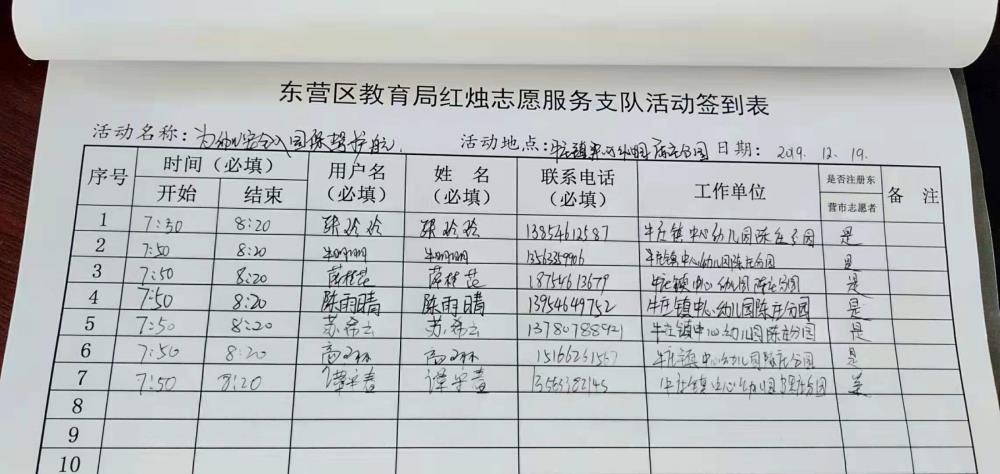 东营区教育局红烛志愿服务支队活动签到表
活动名称：为幼儿安全入园保驾护航 活动地点：牛庄镇中心幼儿园陈庄分园 日期：2019.12.19.
序号 时间（必填） 用户名（必填） 姓名（必填） 联系电话（必填） 工作单位 是否注册东营市志愿者 备注
开始 结束
1 7:50 8:20 张玲玲 张玲玲 13854612587 牛庄镇中心幼儿园陈庄分园 是
2 7:50 8:20 牛明明 牛明明 13563359906 牛庄镇中心幼儿园陈庄分园 是
3 7:50 8:20 18754613679 牛庄镇中心幼儿园陈庄分园 是
4 7:50 8:20 陈雨晴 陈雨晴 13954649752 牛庄镇中心幼儿园陈庄分园 是
5 7:50 8:20 苏希云 苏希云 13780788921 牛庄镇中心幼儿园陈庄分园 是
6 7:50 8:20 牛庄镇中心幼儿园陈庄分园 是
7 7:50 8:20 牛庄镇中心幼儿园陈庄分园 是
8
9
10